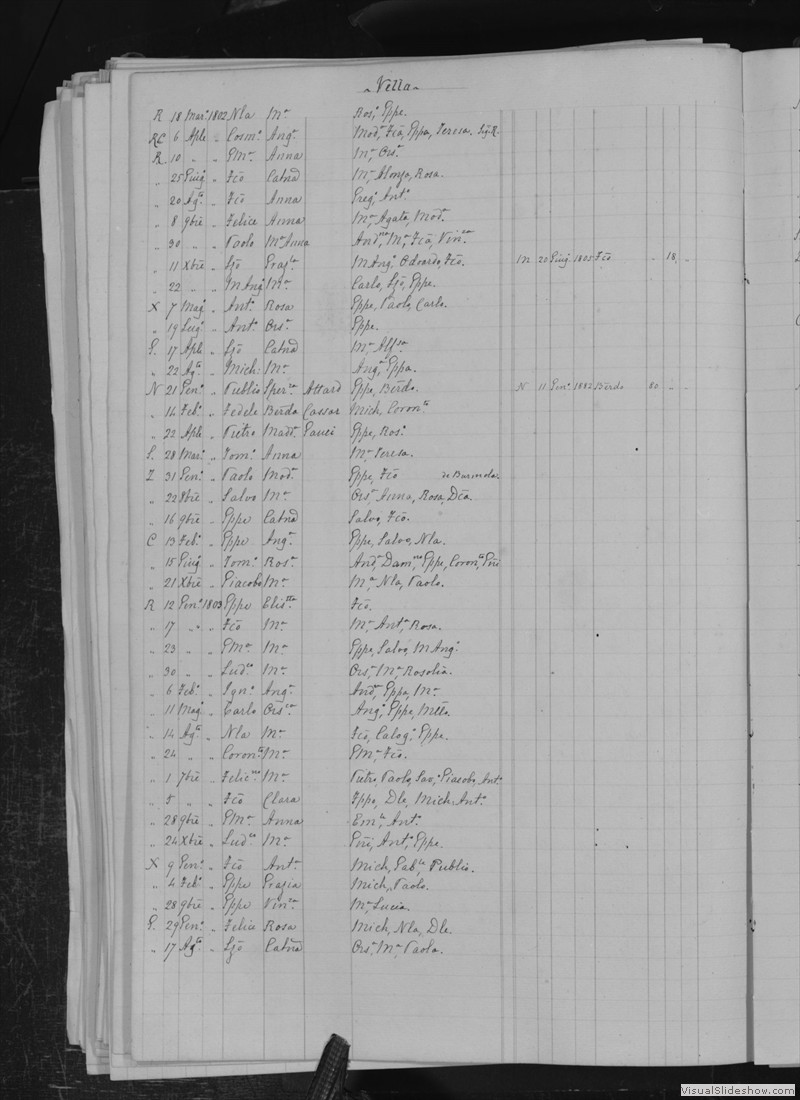 Vella
R 18 Mar.o 1802 Nla M.a Ros,a Eppe.
RC 6 Aple „ Cosm.o Ang.a Mod,o Fco, Eppa, Teresa.
R 10 „ „ GM.a Anna M,a Ors.a
„ 25 Giug.o „ Fco Catna M,a Alonza, Rosa.
„ 20 Ag.to „ Fco Anna Greg,o Ant.o
„ 8 9bre „ Felice Anna M,a Agata, Mod.o
„ 30 „ „ Paolo M.a Anna And,na M,a Fca, Vin.za
„ 11 Xbre „ Lzo Graz.la M Ang,a Odoardo, Fco. M 20 Giug.o 1805 Fco „ 18 „
„ 22 „ „ M Ang.o M.a Carlo, Lzo, Eppe.
X 7 Mag.o „ Ant.o Rosa Eppe, Paolo, Carlo.
„ 19 Lug.o „ Ant.o Ors.a Eppe.
G. 17 Aple „ Lzo Catna M,a Alf.sa
„ 22 Ag.to „ Mich. M.a Ang,o Eppa.
N 21 Gen.o „ Publio Sper.za Attard Eppe, Berdo. N 11 Gen.o 1882 Berdo 80 „ „
„ 14 Feb.o „ Fedele Berda Cassar Mich, Coron.ta
„ 22 Aple „ Pietro Madd.a Gauci Eppe, Ros.a
S. 28 Mar.o „ Tom.o Anna M,a Teresa.
Z 31 Gen.o „ Paolo Mod.a Eppe, Fco de Burmola.
„ 22 8bre „ Salvo M.a Ors,a Anna, Rosa, Dca.
„ 16 9bre „ Eppe Catna Salvo, Fco.
C 13 Feb.o „ Eppe Ang.a Eppe, Salvo, Nla.
„ 15 Giug.o „ Tom.o Ros.a And,a Dam,no Eppe, Coron,ta
„ 21 Xbre „ Giacobo M.a M,a Nla, Paolo.
R 12 Gen.o 1803 Eppe Elis.tta Fco.
„ 17 „ „ Fco M.a M,a Ant,a Rosa.
„ 23 „ „ GM.a M.a Eppe, Salvo, M Ang.o
„ 30 „ „ Lud.co M.a Ors,a M,a Rosolia.
„ 6 Feb.o „ Ign.o Ang.a And,a Eppa, M.a
„ 11 Mag.o „ Carlo Ors.la Ang,o Eppe,
„ 14 Ag.to „ Nla M.a Fco, Calog,o Eppe.
„ 24 „ „ Coron.to M.a GM,a Fco.
„ 1 7bre „ Felic.no M.a Pietro, Paolo, Sav,o Giacobo, Ant.o
„ 5 „ „ Fco Clara Eppa, Dle, Mich, Ant.o
„ 28 9bre „ GM.a Anna Em,le Ant.o
„ 24 Xbre „ Lud.co M.a Gni, Ant,o Eppe.
X 9 Gen.o „ Fco Ant.a Mich, Gab,le Publio.
„ 4 Feb.o „ Eppe Grazia Mich, Paolo.
„ 28 9bre „ Eppe Vin.za M,a Lucia.
G. 29 Gen.o „ Felice Rosa Mich, Nla, Dle.
„ 17 Ag.to „ Lzo Catna Ors,a M,a Paola.
VisualSlideshow.com